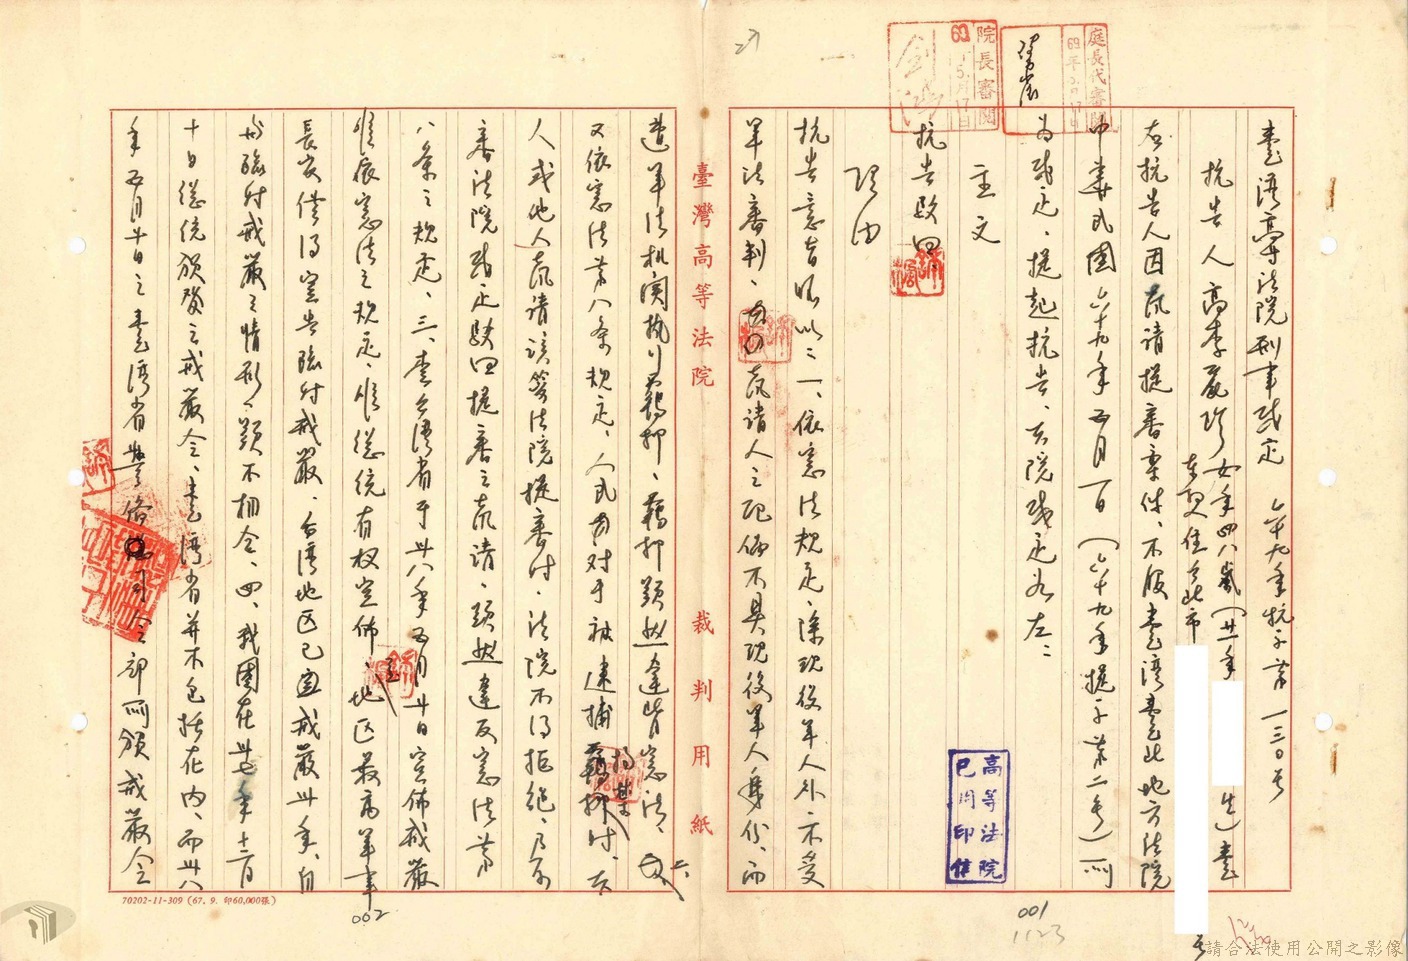 臺灣高等法院刑事裁定　六十九年抗字第一三〇號
抗告人　高李麗珍　女年四八歲（廿一年　生）臺
在　住台北市　號
右抗告人因聲請提審案件、不服臺灣臺北地方法院
中華民國六十九年五月一日（六十九年提字第二號）所
為裁定、提起抗告、本院裁定如左：
主文
抗告駁回。
理由
抗告意旨略以：一、依憲法規定、除現役軍人外、不受
軍法審判、聲請人之配偶不具現役軍人身份、而
遭軍法機關執行羈押、羈押顯然違背憲法、二、
又依憲法第八條規定、人民對于被逮捕拘禁時、本
人或他人聲請該管法院提審時、法院不得拒絕、乃原
審法院裁定駁回提審之聲請、顯然違反憲法第
八條之規定、三、查台灣省于卅八年五月廿日宣佈戒嚴
惟依憲法之規定、惟總統有權宣佈、地區最高軍事
長官僅得宣告臨時戒嚴、台灣地區已宣戒嚴卅年、自
與臨時戒嚴之情形、顯不相合、四、我國在卅七年十二月
十日總統頒發之戒嚴令、臺灣省并不包括在內、而卅八
年五月廿日之臺灣省警備總司令部所頒戒嚴令
臺灣高等法院　裁判用紙
院長審閱
69
5月17日
庭長代審閱
69年
高等法院
已用印信
70202-11-309 (67. 9. 印60,000張)
002
001
1123
27
請合法使用公開之影像